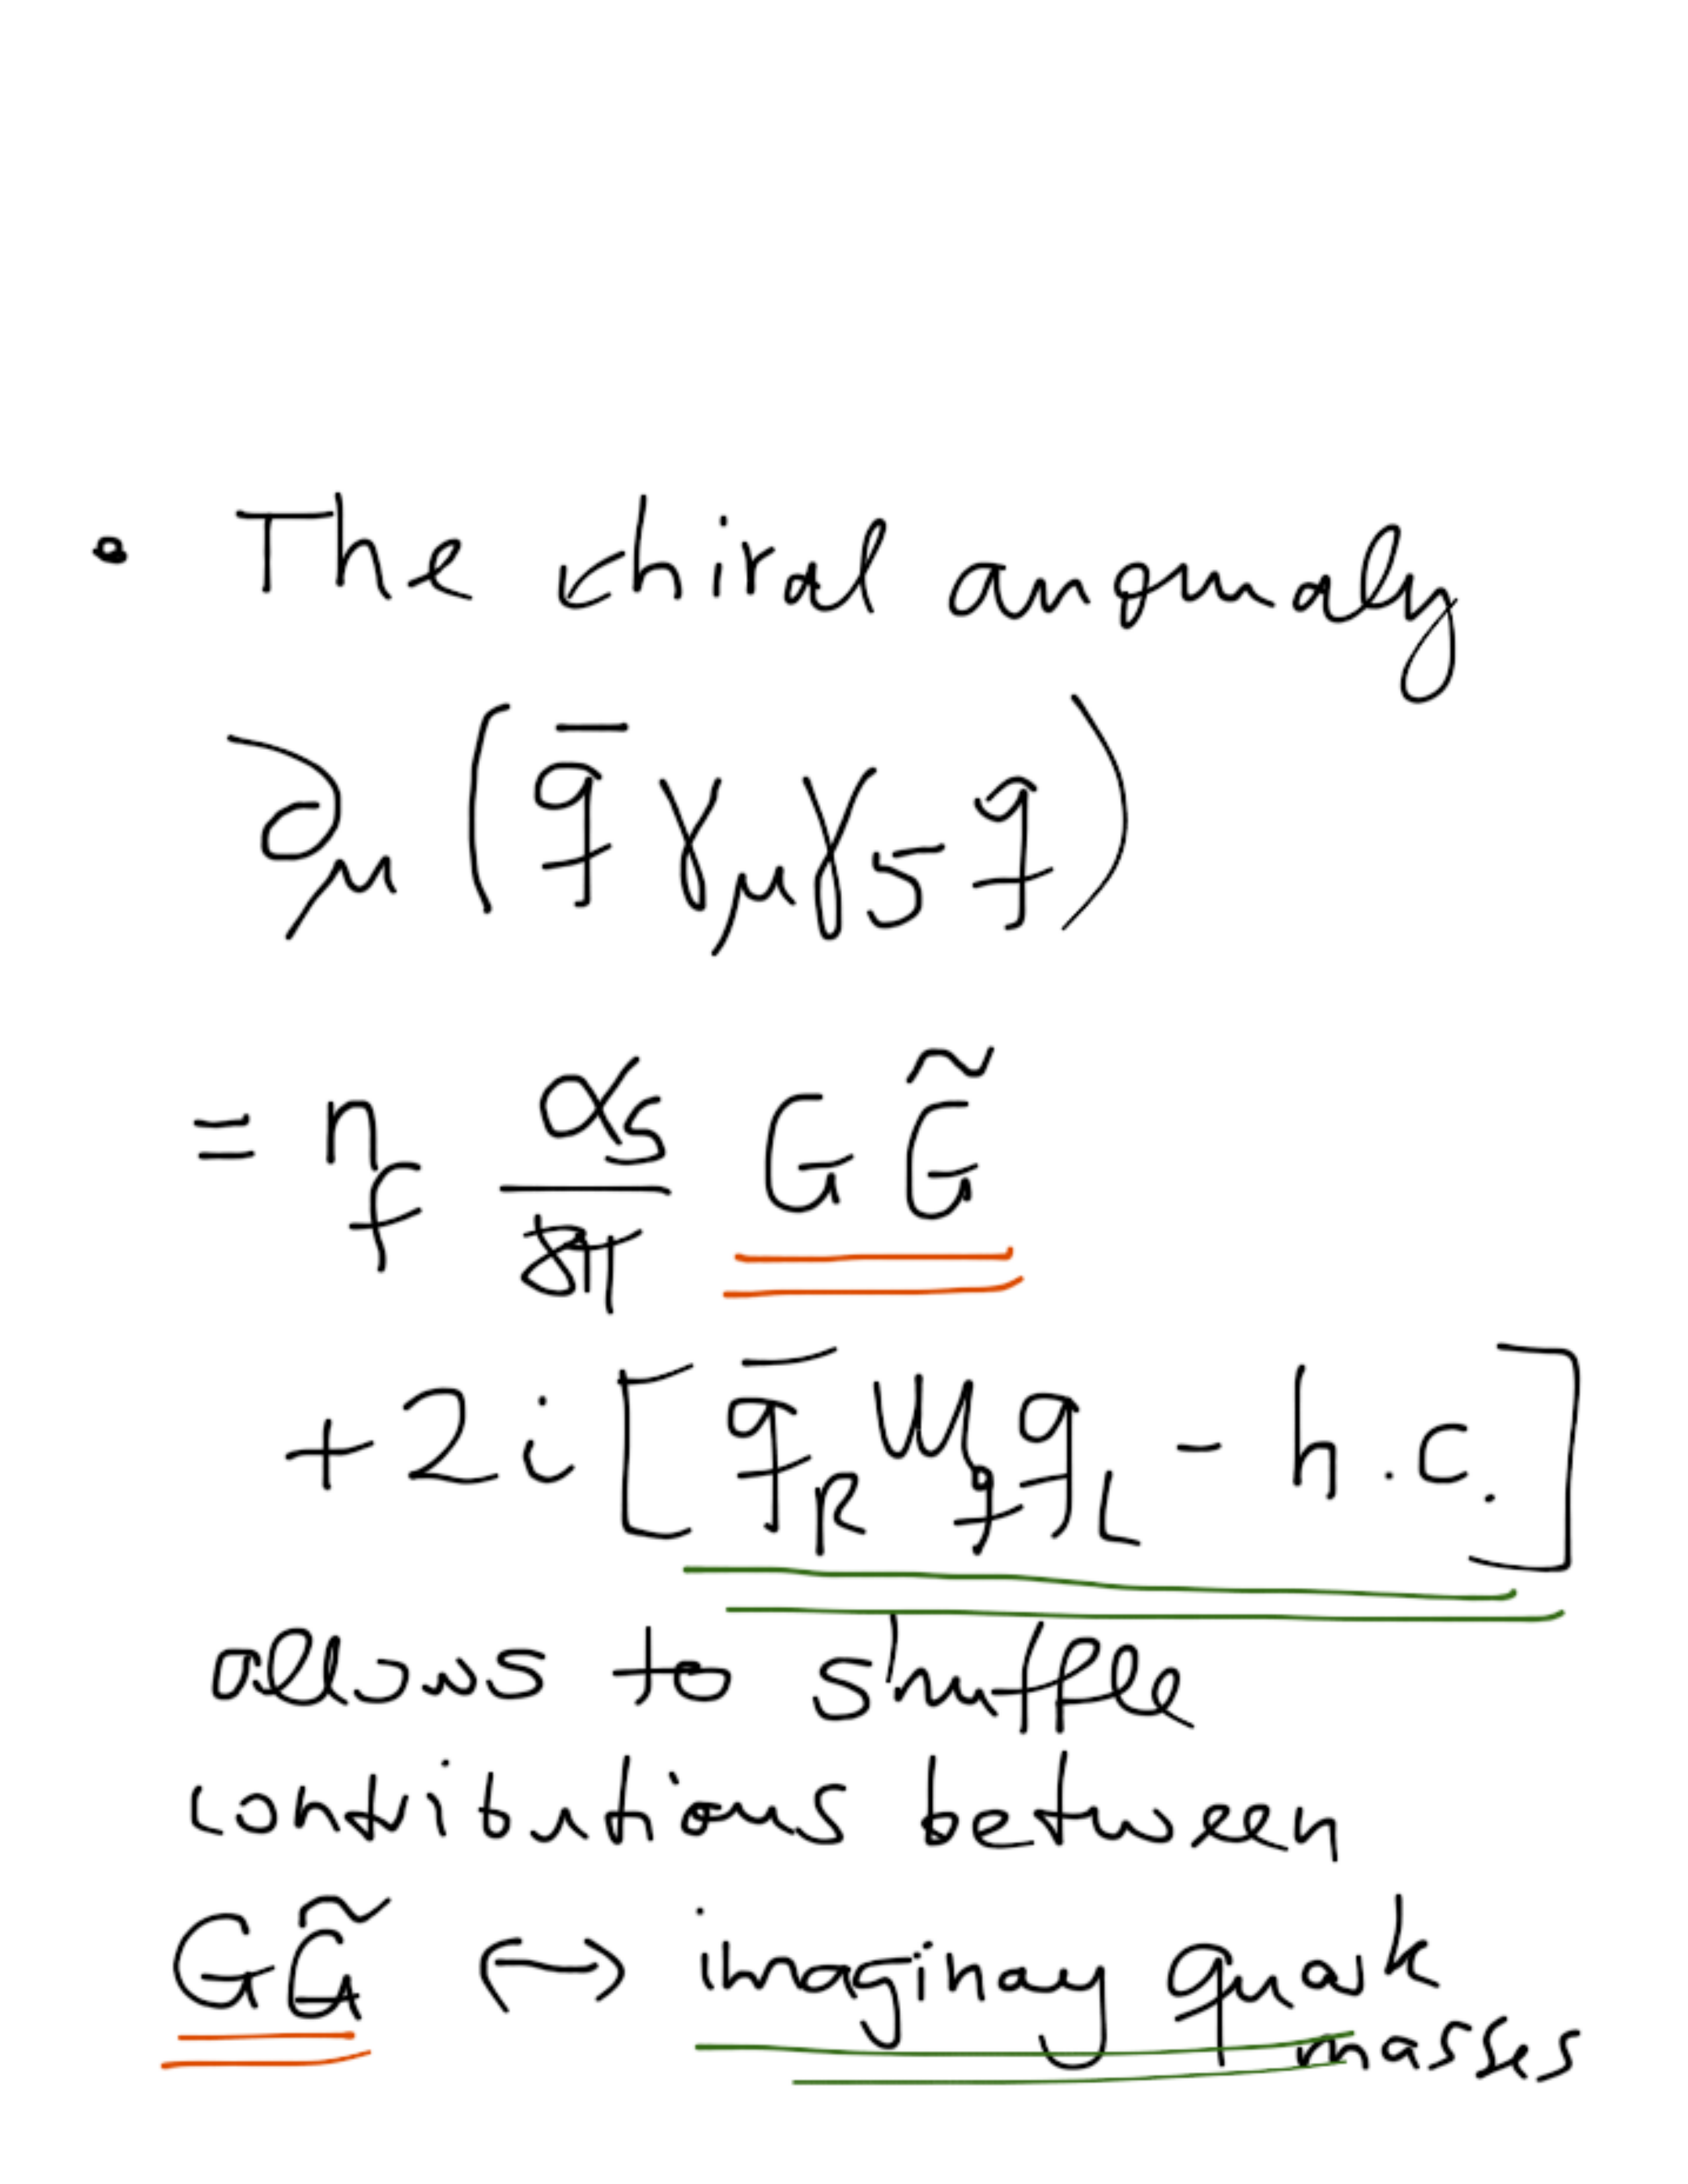 • The chiral anomaly
∂_μ (q̄ γ_μ γ_5 q)
= n_f α_s/8π G G̃
+ 2i [ q̄_R m_q q_L - h.c. ]
allows to shuffle
contributions between
GG̃ ↔ imaginay quark
masses